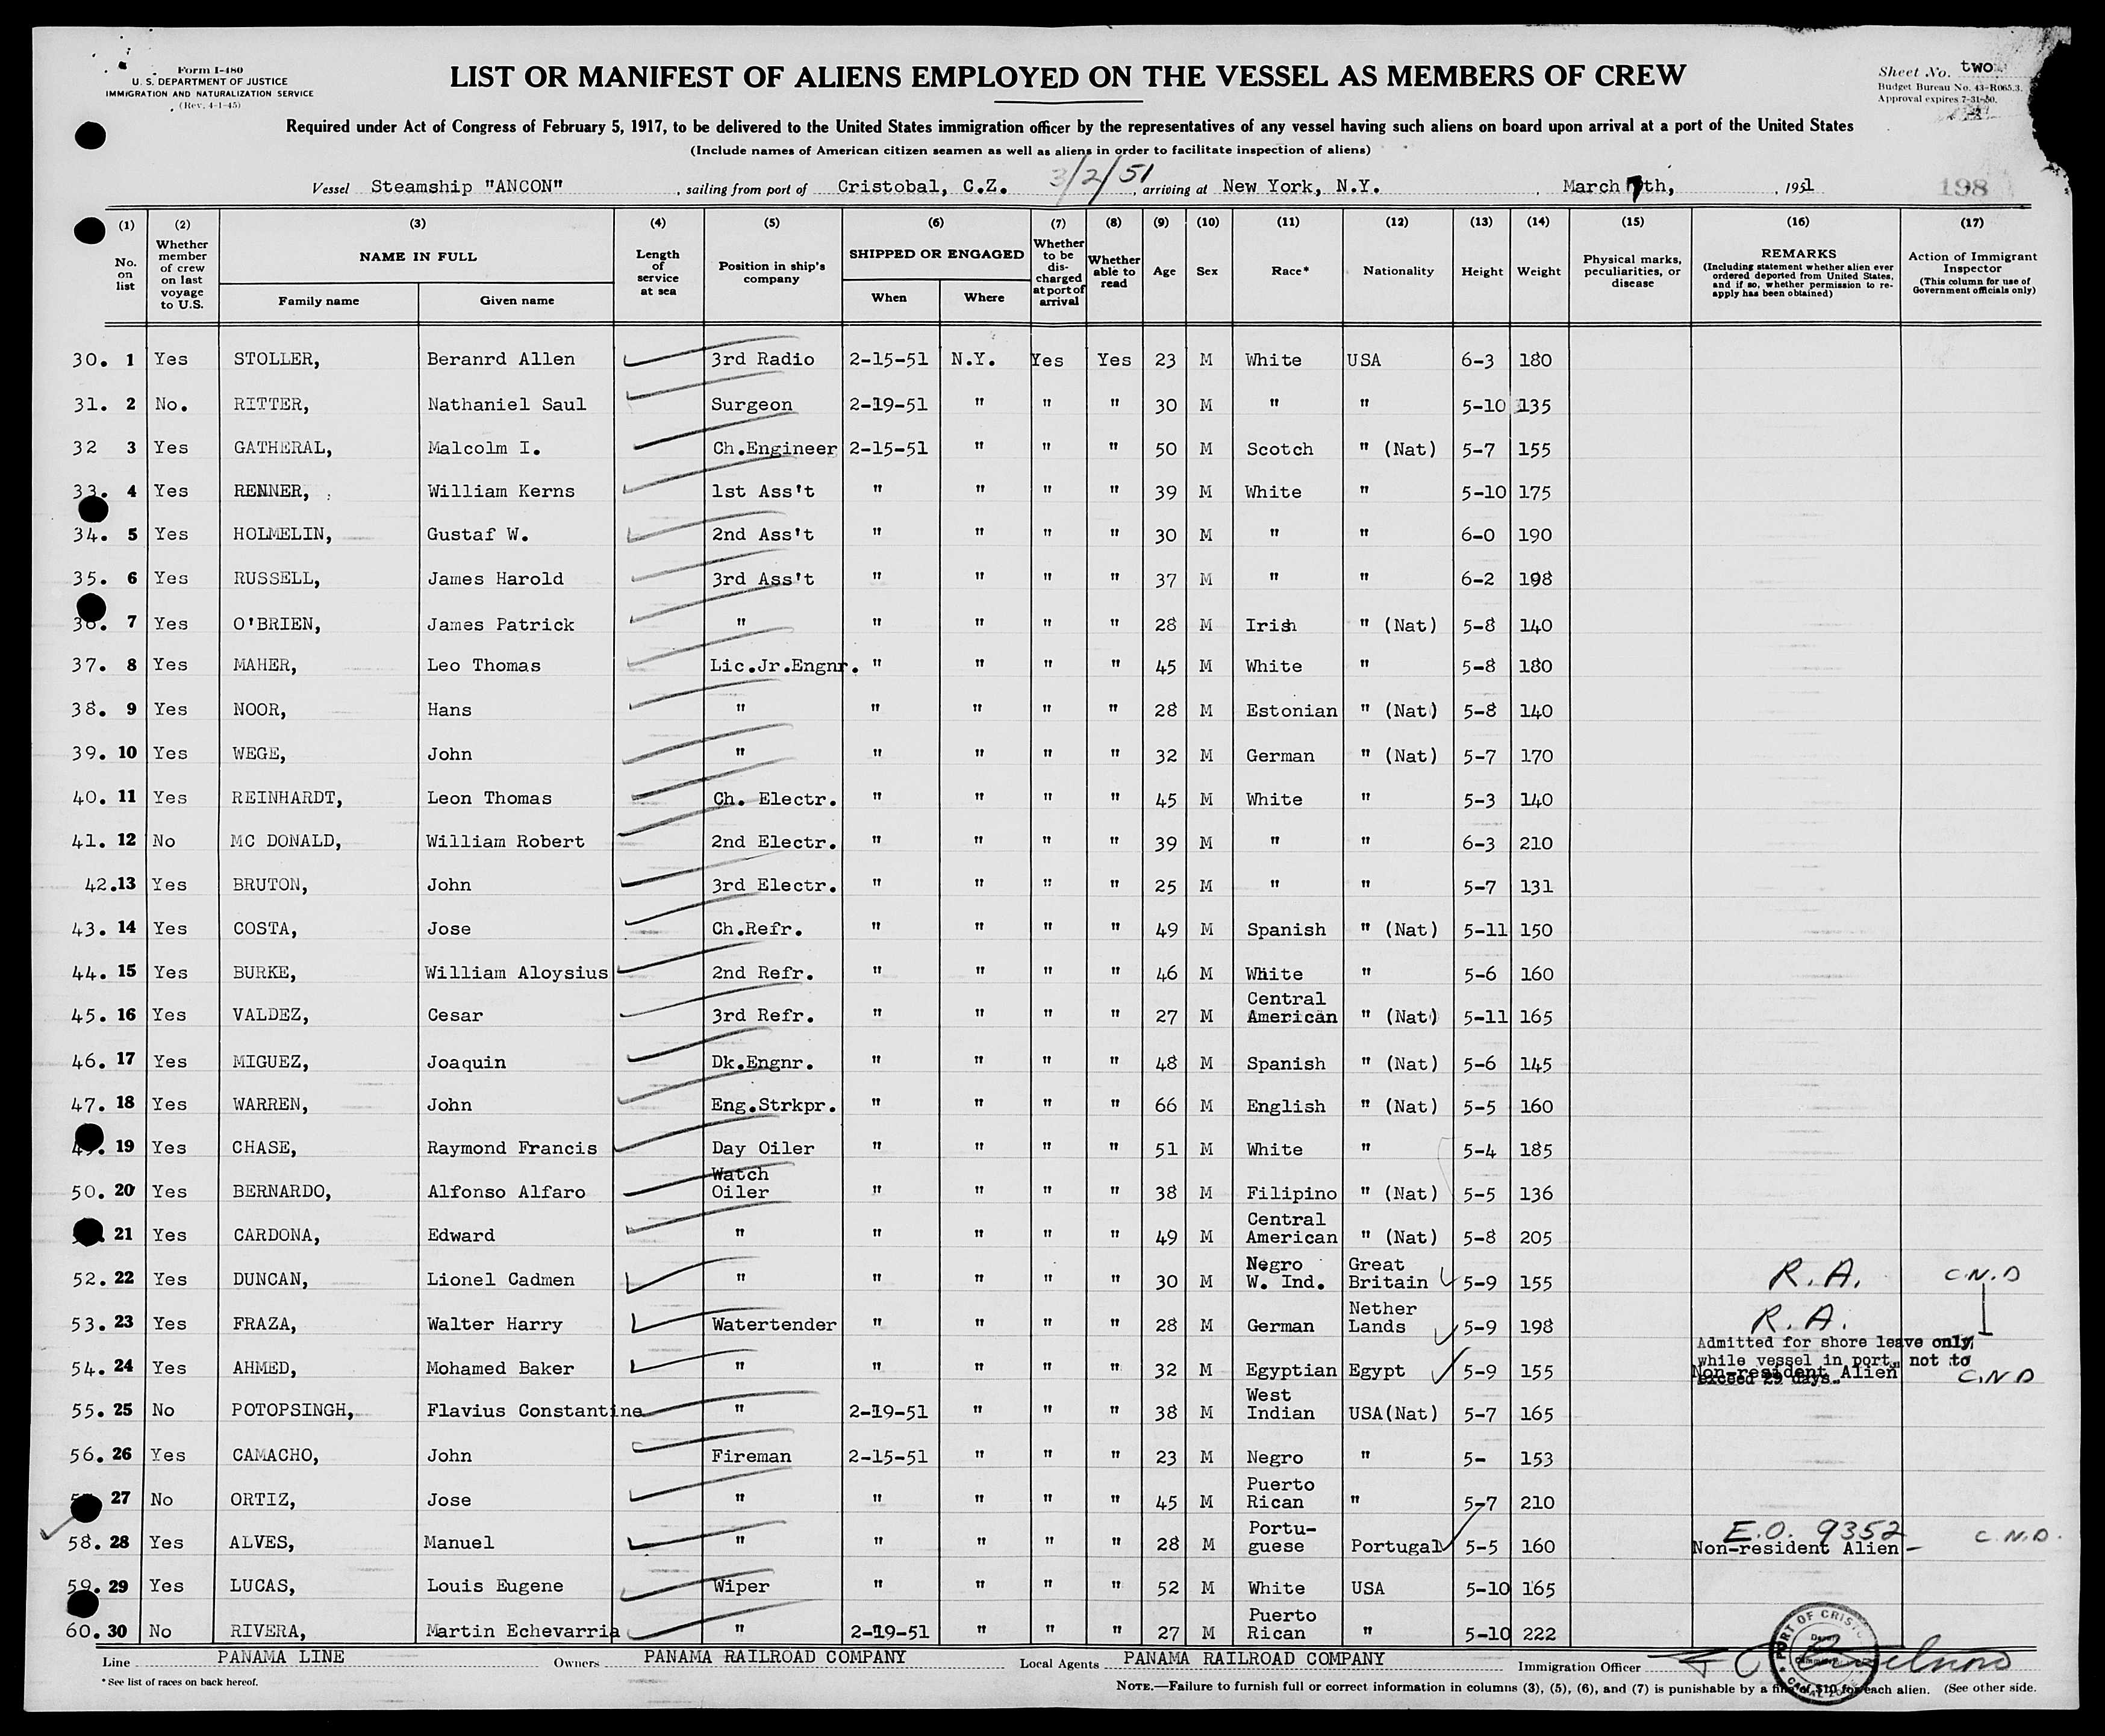 Form I-480
U. S. DEPARTMENT OF JUSTICE
IMMIGRATION AND NATURALIZATION SERVICE
(Rev. 4-1-45)
LIST OR MANIFEST OF ALIENS EMPLOYED ON THE VESSEL AS MEMBERS OF CREW
Sheet No. two
Budget Bureau No. 43-R065.3.
Approval expires 7-31-50.
Required under Act of Congress of February 5, 1917, to be delivered to the United States immigration officer by the representatives of any vessel having such aliens on board upon arrival at a port of the United States
(Include names of American citizen seamen as well as aliens in order to facilitate inspection of aliens)
Vessel Steamship "ANCON", sailing from port of Cristobal, C.Z. 3/2/51, arriving at New York, N.Y., March 7th, , 1951
198
(1) (2) (3) (4) (5) (6) (7) (8) (9) (10) (11) (12) (13) (14) (15) (16) (17)
No. on list
Whether member of crew on last voyage to U.S.
NAME IN FULL
Family name
Given name
Length of service at sea
Position in ship's company
SHIPPED OR ENGAGED
When
Where
Whether to be discharged at port of arrival
Whether able to read
Age
Sex
Race*
Nationality
Height
Weight
Physical marks, peculiarities, or disease
REMARKS
(Including statement whether alien ever ordered deported from United States, and if so, whether permission to reapply has been obtained)
Action of Immigrant Inspector
(This column for use of Government officials only)
30. 1 Yes STOLLER, Beranrd Allen 3rd Radio 2-15-51 N.Y. Yes Yes 23 M White USA 6-3 180
31. 2 No. RITTER, Nathaniel Saul Surgeon 2-19-51 " " " 30 M " " 5-10 135
32 3 Yes GATHERAL, Malcolm I. Ch.Engineer 2-15-51 " " " 50 M Scotch " (Nat) 5-7 155
33. 4 Yes RENNER, William Kerns 1st Ass't " " " " 39 M White " 5-10 175
34. 5 Yes HOLMELIN, Gustaf W. 2nd Ass't " " " " 30 M " " 6-0 190
35. 6 Yes RUSSELL, James Harold 3rd Ass't " " " " 37 M " " 6-2 198
36. 7 Yes O'BRIEN, James Patrick " " " " " 28 M Irish " (Nat) 5-8 140
37. 8 Yes MAHER, Leo Thomas Lic.Jr.Engnr. " " " " 45 M White " 5-8 180
38. 9 Yes NOOR, Hans " " " " " 28 M Estonian " (Nat) 5-8 140
39. 10 Yes WEGE, John " " " " " 32 M German " (Nat) 5-7 170
40. 11 Yes REINHARDT, Leon Thomas Ch. Electr. " " " " 45 M White " 5-3 140
41. 12 No MC DONALD, William Robert 2nd Electr. " " " " 39 M " " 6-3 210
42. 13 Yes BRUTON, John 3rd Electr. " " " " 25 M " " 5-7 131
43. 14 Yes COSTA, Jose Ch.Refr. " " " " 49 M Spanish " (Nat) 5-11 150
44. 15 Yes BURKE, William Aloysius 2nd Refr. " " " " 46 M White " 5-6 160
45. 16 Yes VALDEZ, Cesar 3rd Refr. " " " " 27 M Central American " (Nat) 5-11 165
46. 17 Yes MIGUEZ, Joaquin Dk.Engnr. " " " " 48 M Spanish " (Nat) 5-6 145
47. 18 Yes WARREN, John Eng.Strkpr. " " " " 66 M English " (Nat) 5-5 160
19 Yes CHASE, Raymond Francis Day Oiler " " " " 51 M White " 5-4 185
50. 20 Yes BERNARDO, Alfonso Alfaro Watch Oiler " " " " 38 M Filipino " (Nat) 5-5 136
21 Yes CARDONA, Edward " " " " " 49 M Central American " (Nat) 5-8 205
52. 22 Yes DUNCAN, Lionel Cadmen " " " " " 30 M Negro W. Ind. Great Britain 5-9 155 R.A. C.N.D
53. 23 Yes FRAZA, Walter Harry Watertender " " " " 28 M German Nether Lands 5-9 198 R.A.
54. 24 Yes AHMED, Mohamed Baker " " " " " 32 M Egyptian Egypt 5-9 155 Admitted for shore leave only, while vessel in port, not to exceed 29 days. Non-resident Alien C.N.D
55. 25 No POTOPSINGH, Flavius Constantine " 2-19-51 " " " 38 M West Indian USA(Nat) 5-7 165
56. 26 Yes CAMACHO, John Fireman 2-15-51 " " " 23 M Negro " 5- 153
27 No ORTIZ, Jose " " " " " 45 M Puerto Rican " 5-7 210
58. 28 Yes ALVES, Manuel " " " " " 28 M Portu-guese Portugal 5-5 160 E.O. 9352 Non-resident Alien - C.N.D.
59. 29 Yes LUCAS, Louis Eugene Wiper " " " " 52 M White USA 5-10 165
60. 30 No RIVERA, Martin Echevarria " 2-19-51 " " " 27 M Puerto Rican " 5-10 222
Line PANAMA LINE Owners PANAMA RAILROAD COMPANY Local Agents PANAMA RAILROAD COMPANY Immigration Officer
PORT OF CRISTO
CANAL ZONE
*See list of races on back hereof.
NOTE.—Failure to furnish full or correct information in columns (3), (5), (6), and (7) is punishable by a fine of $10 for each alien. (See other side.